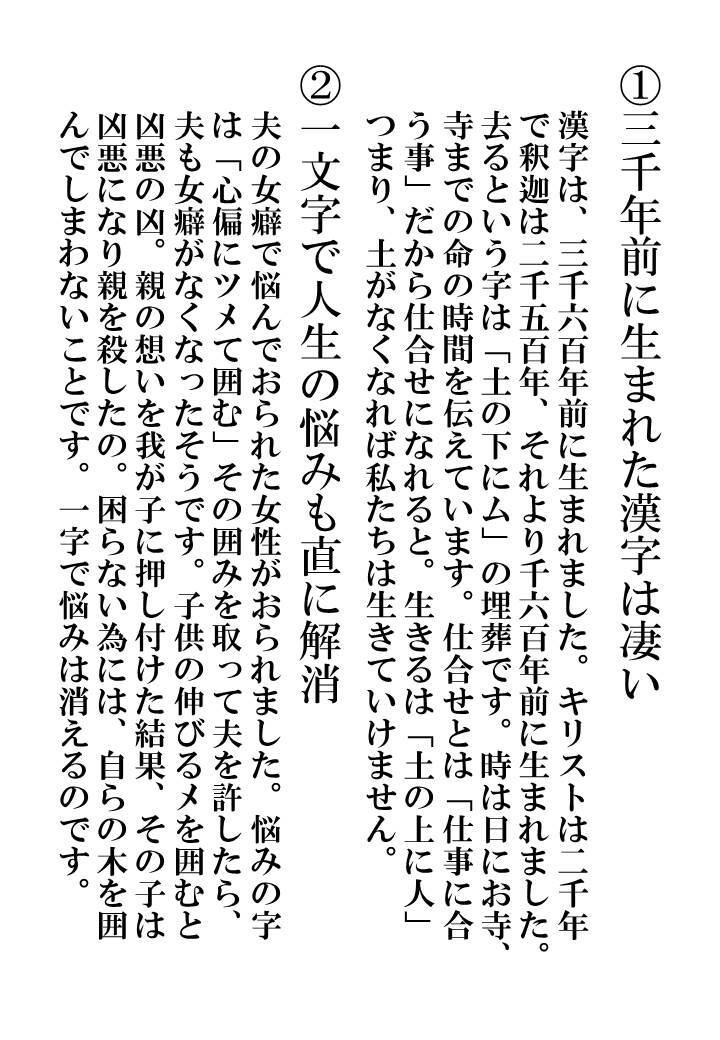 ①三千年前に生まれた漢字は凄い
漢字は、三千六百年前に生まれました。キリストは二千年
で釈迦は二千五百年、それより千六百年前に生まれました。
去るという字は「土の下にム」の埋葬です。時は日にお寺、
寺までの命の時間を伝えています。仕合せとは「仕事に合
う事」だから仕合せになれると。生きるは「土の上に人」
つまり、土がなくなれば私たちは生きていけません。
②一文字で人生の悩みも直に解消
夫の女癖で悩んでおられた女性がおられました。悩みの字
は「心偏にツメて囲む」その囲みを取って夫を許したら、
夫も女癖がなくなったそうです。子供の伸びるメを囲むと
凶悪の凶。親の想いを我が子に押し付けた結果、その子は
凶悪になり親を殺したの。困らない為には、自らの木を囲
んでしまわないことです。一字で悩みは消えるのです。